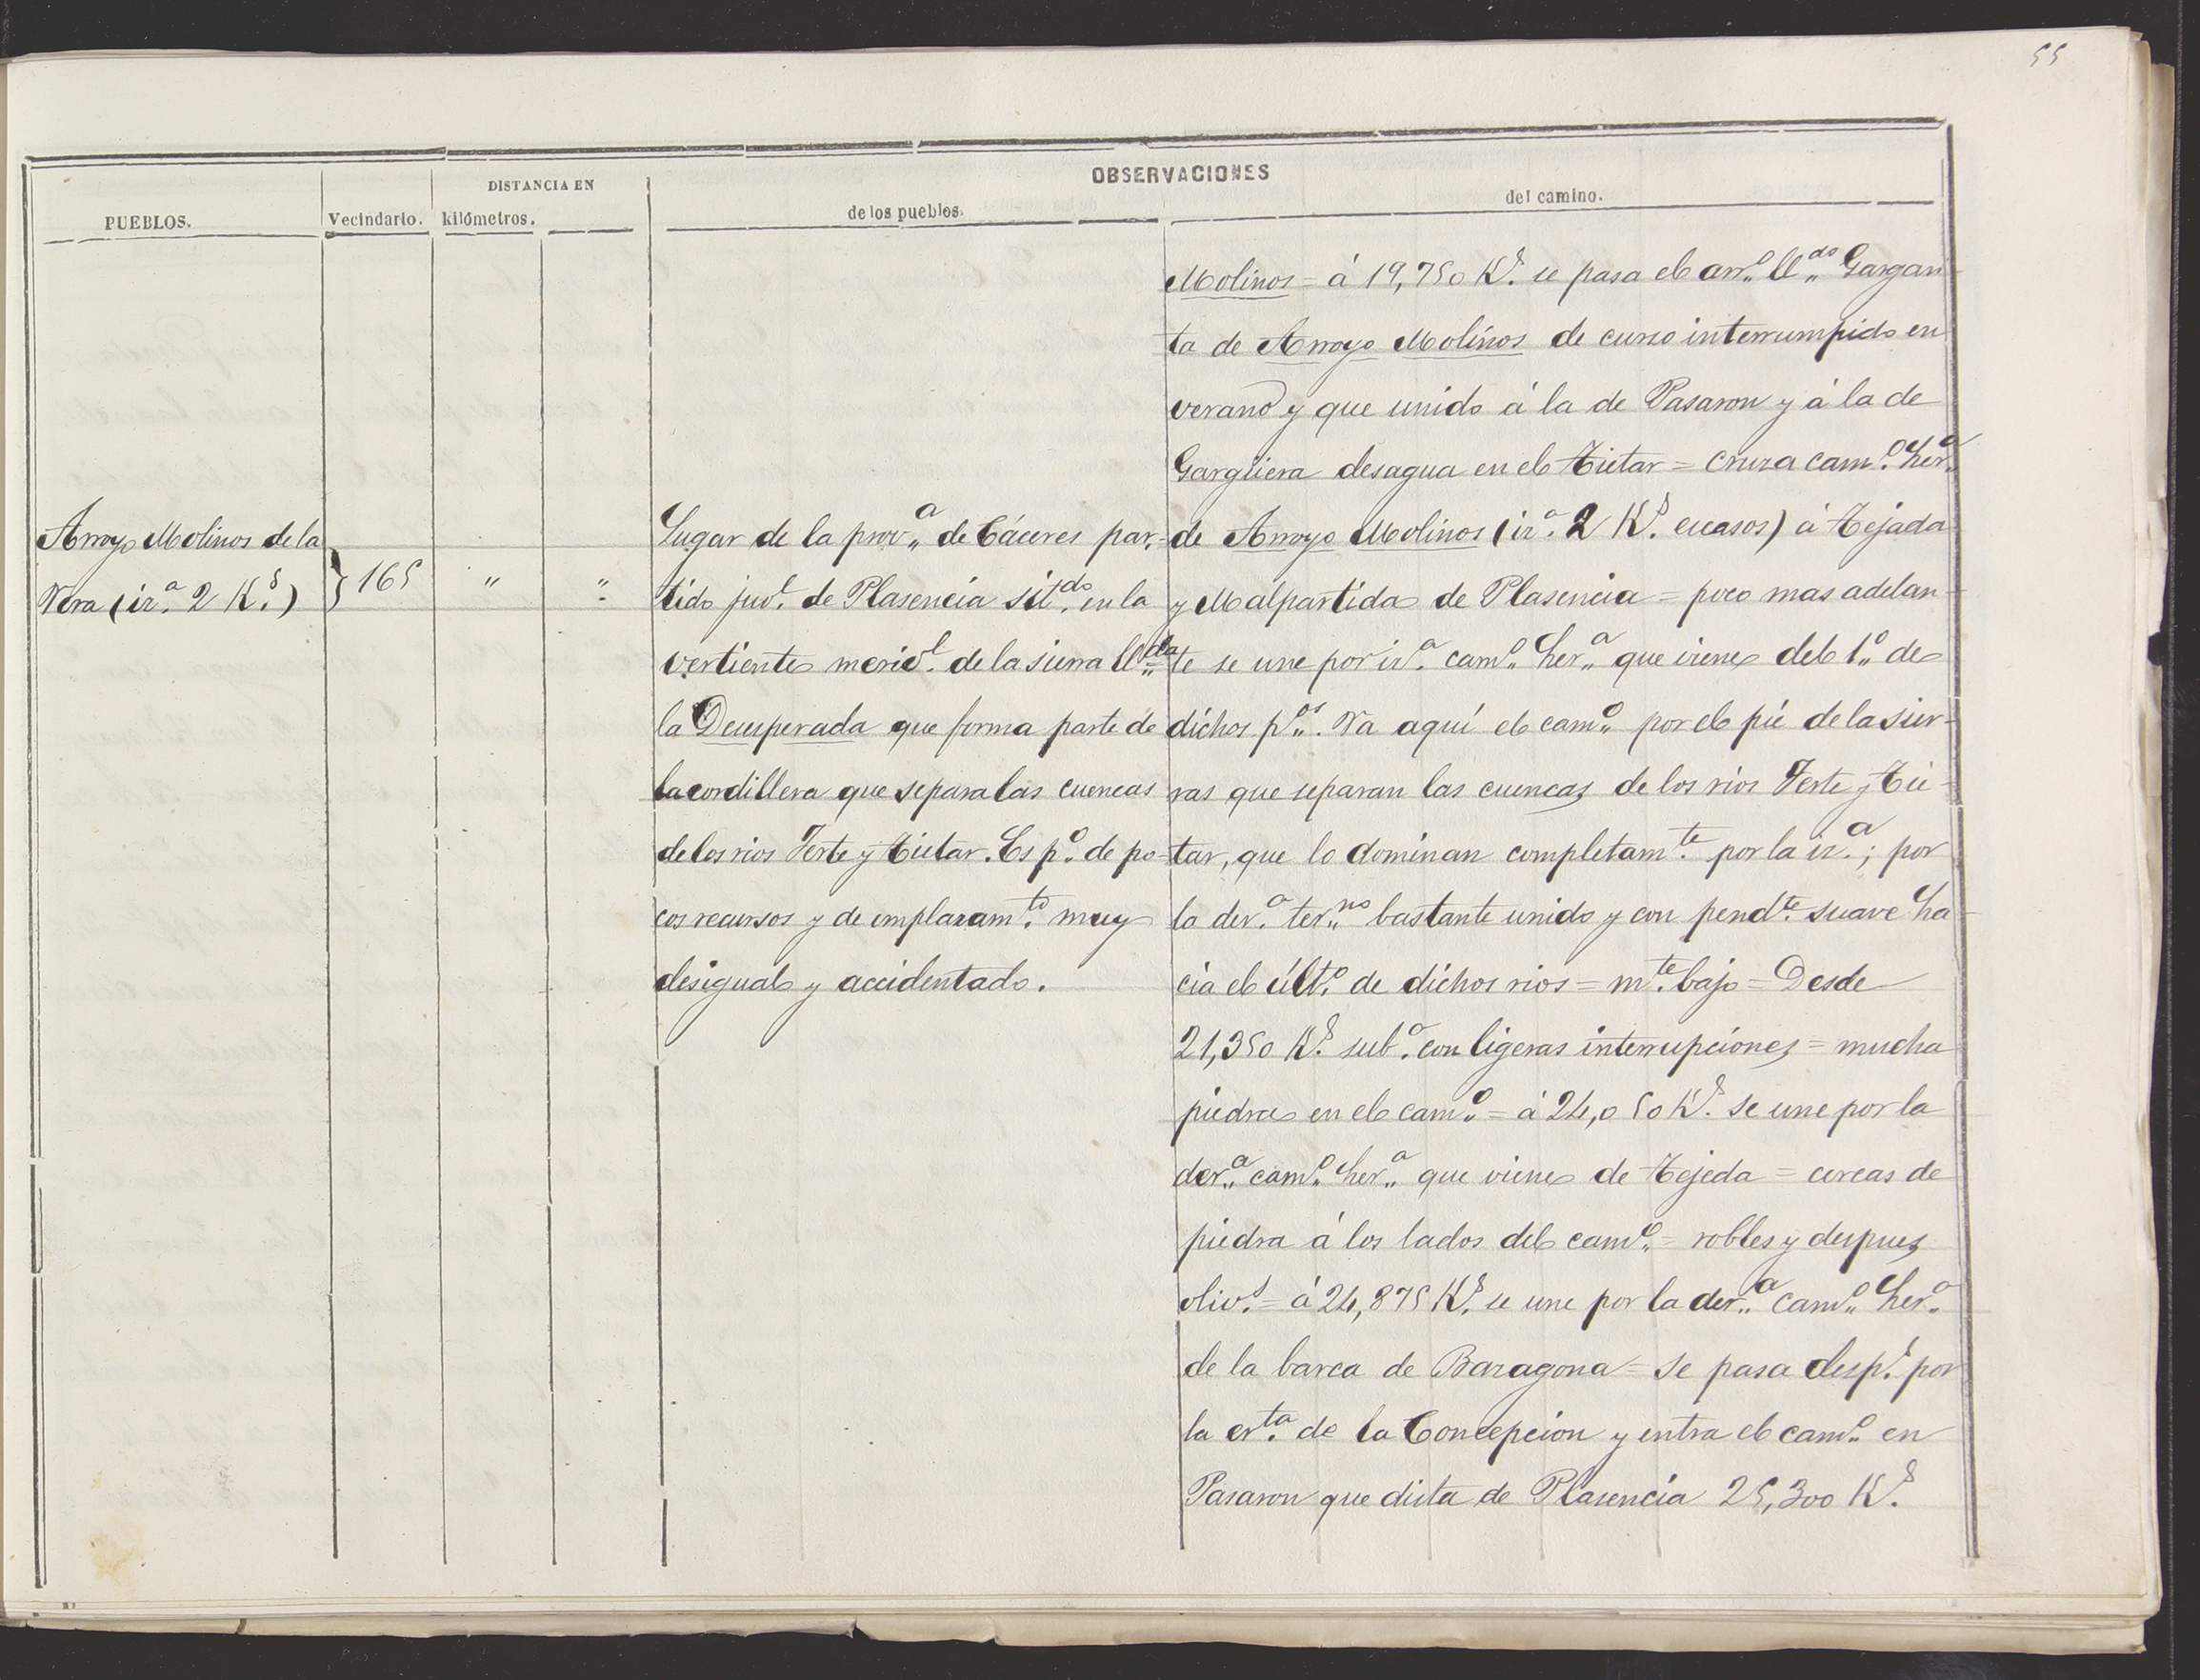 55
OBSERVACIONES
DISTANCIA EN
PUEBLOS. Vecindario. kilómetros. de los pueblos. del camino.
Arroyo Molinos de la
Vera (izª 2 Kˢ)
165 " "
Lugar de la provª de Cáceres par-
tido judˡ de Plasencia sitᵈᵒ en la
vertiente meridˡ de la sierra llᵈᵃ
la Desesperada que forma parte de
la cordillera que separa las cuencas
de los rios Jerte y Tietar. Es pº de po-
cos recursos y de emplazamᵗᵒ muy
desigual y accidentado.
Molinos = á 19,750 Kˢ se pasa el arrº llᵈᵒ Gargan-
ta de Arroyo Molinos de curso interrumpido en
verano y que unido á la de Pasaron y á la de
Gargüera desagua en el Tietar = cruza camº herª
de Arroyo Molinos (izª 2 Kˢ escasos) á Tejada
y Malpartida de Plasencia = poco mas adelan-
te se une por izª camº herª que viene del 1º de
dichos pᵒˢ. Va aquí el camº por el pié de la sier-
ras que separan las cuencas de los rios Jerte y Tie-
tar, que lo dominan completamᵗᵉ por la izª; por
la derª terⁿᵒ bastante unido y con pendᵗᵉ suave ha-
cia el últº de dichos rios = mᵗᵉ bajo = Desde
21,350 Kˢ subª con ligeras interrupciones = mucha
piedra en el camº = á 24,050 Kˢ se une por la
derª camº herª que viene de Tejeda = cercas de
piedra á los lados del camº = robles y despues
olivˢ = á 24,875 Kˢ se une por la derª camº herª
de la barca de Bazagona = se pasa despˢ por
la erᵗᵃ de la Concepcion y entra el camº en
Pasaron que dista de Plasencia 25,300 Kˢ